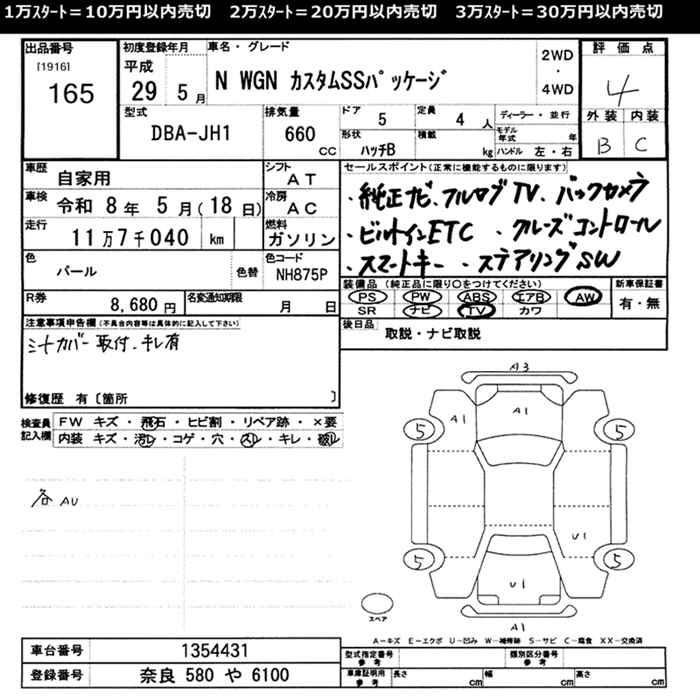 1万スタート＝10万円以内売切　2万スタート＝20万円以内売切　3万スタート＝30万円以内売切
出品番号
[1916]
165
初度登録年月
平成
29 5月
車名・グレード
N WGN カスタムSSパッケージ
2WD
・
4WD
評価点
4
外装 内装
B C
型式
DBA-JH1
排気量
660
cc
ドア
5
定員
4 人
ディーラー・並行
形状
ハッチB
積載
kg
モデル年式 年
ハンドル 左・右
車歴
自家用
シフト
AT
車検
令和 8年 5月(18日)
冷房
AC
走行
11万7千040 km
燃料
ガソリン
色
パール
色替
色コード
NH875P
R券
8,680円
名変通知期限
月 日
セールスポイント(正常に機能するものに限ります)
・純正ナビ、フルセグTV、バックカメラ
・ビルトインETC ・クルーズコントロール
・スマートキー ・ステアリングSW
装備品(純正品に限り○をつけてください)
PS PW ABS エアB AW
SR ナビ TV カワ
新車保証書
有・無
後日品
取説・ナビ取説
注意事項申告欄(不具合内容等は具体的に記入して下さい)
シートカバー取付、キレ有
修復歴 有〔箇所 〕
検査員
記入欄
FW キズ・飛石・ヒビ割・リペア跡・×要
内装 キズ・汚レ・コゲ・穴・スレ・キレ・破レ
各AU
A3
A1
A1
5
5
5
5
U1
U1
A1
スペア
A－キズ E－エクボ U－凹み W－補修跡 S－サビ C－腐食 XX－交換済
車台番号
1354431
登録番号
奈良 580 や 6100
型式指定番号
参考
類別区分番号
参考
車庫証明用
参考
長さ cm
幅 cm
高さ cm